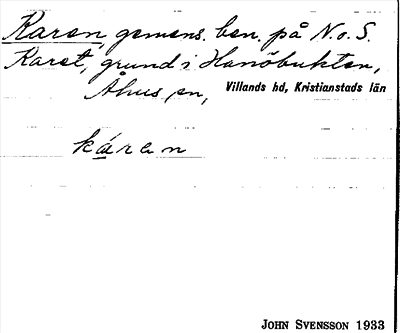 Karen, gemens. ben. på N. o. S.
Karet, grund i Hanöbukten,
Åhus sn, Villands hd, Kristianstads län
káran
JOHN SVENSSON 1933